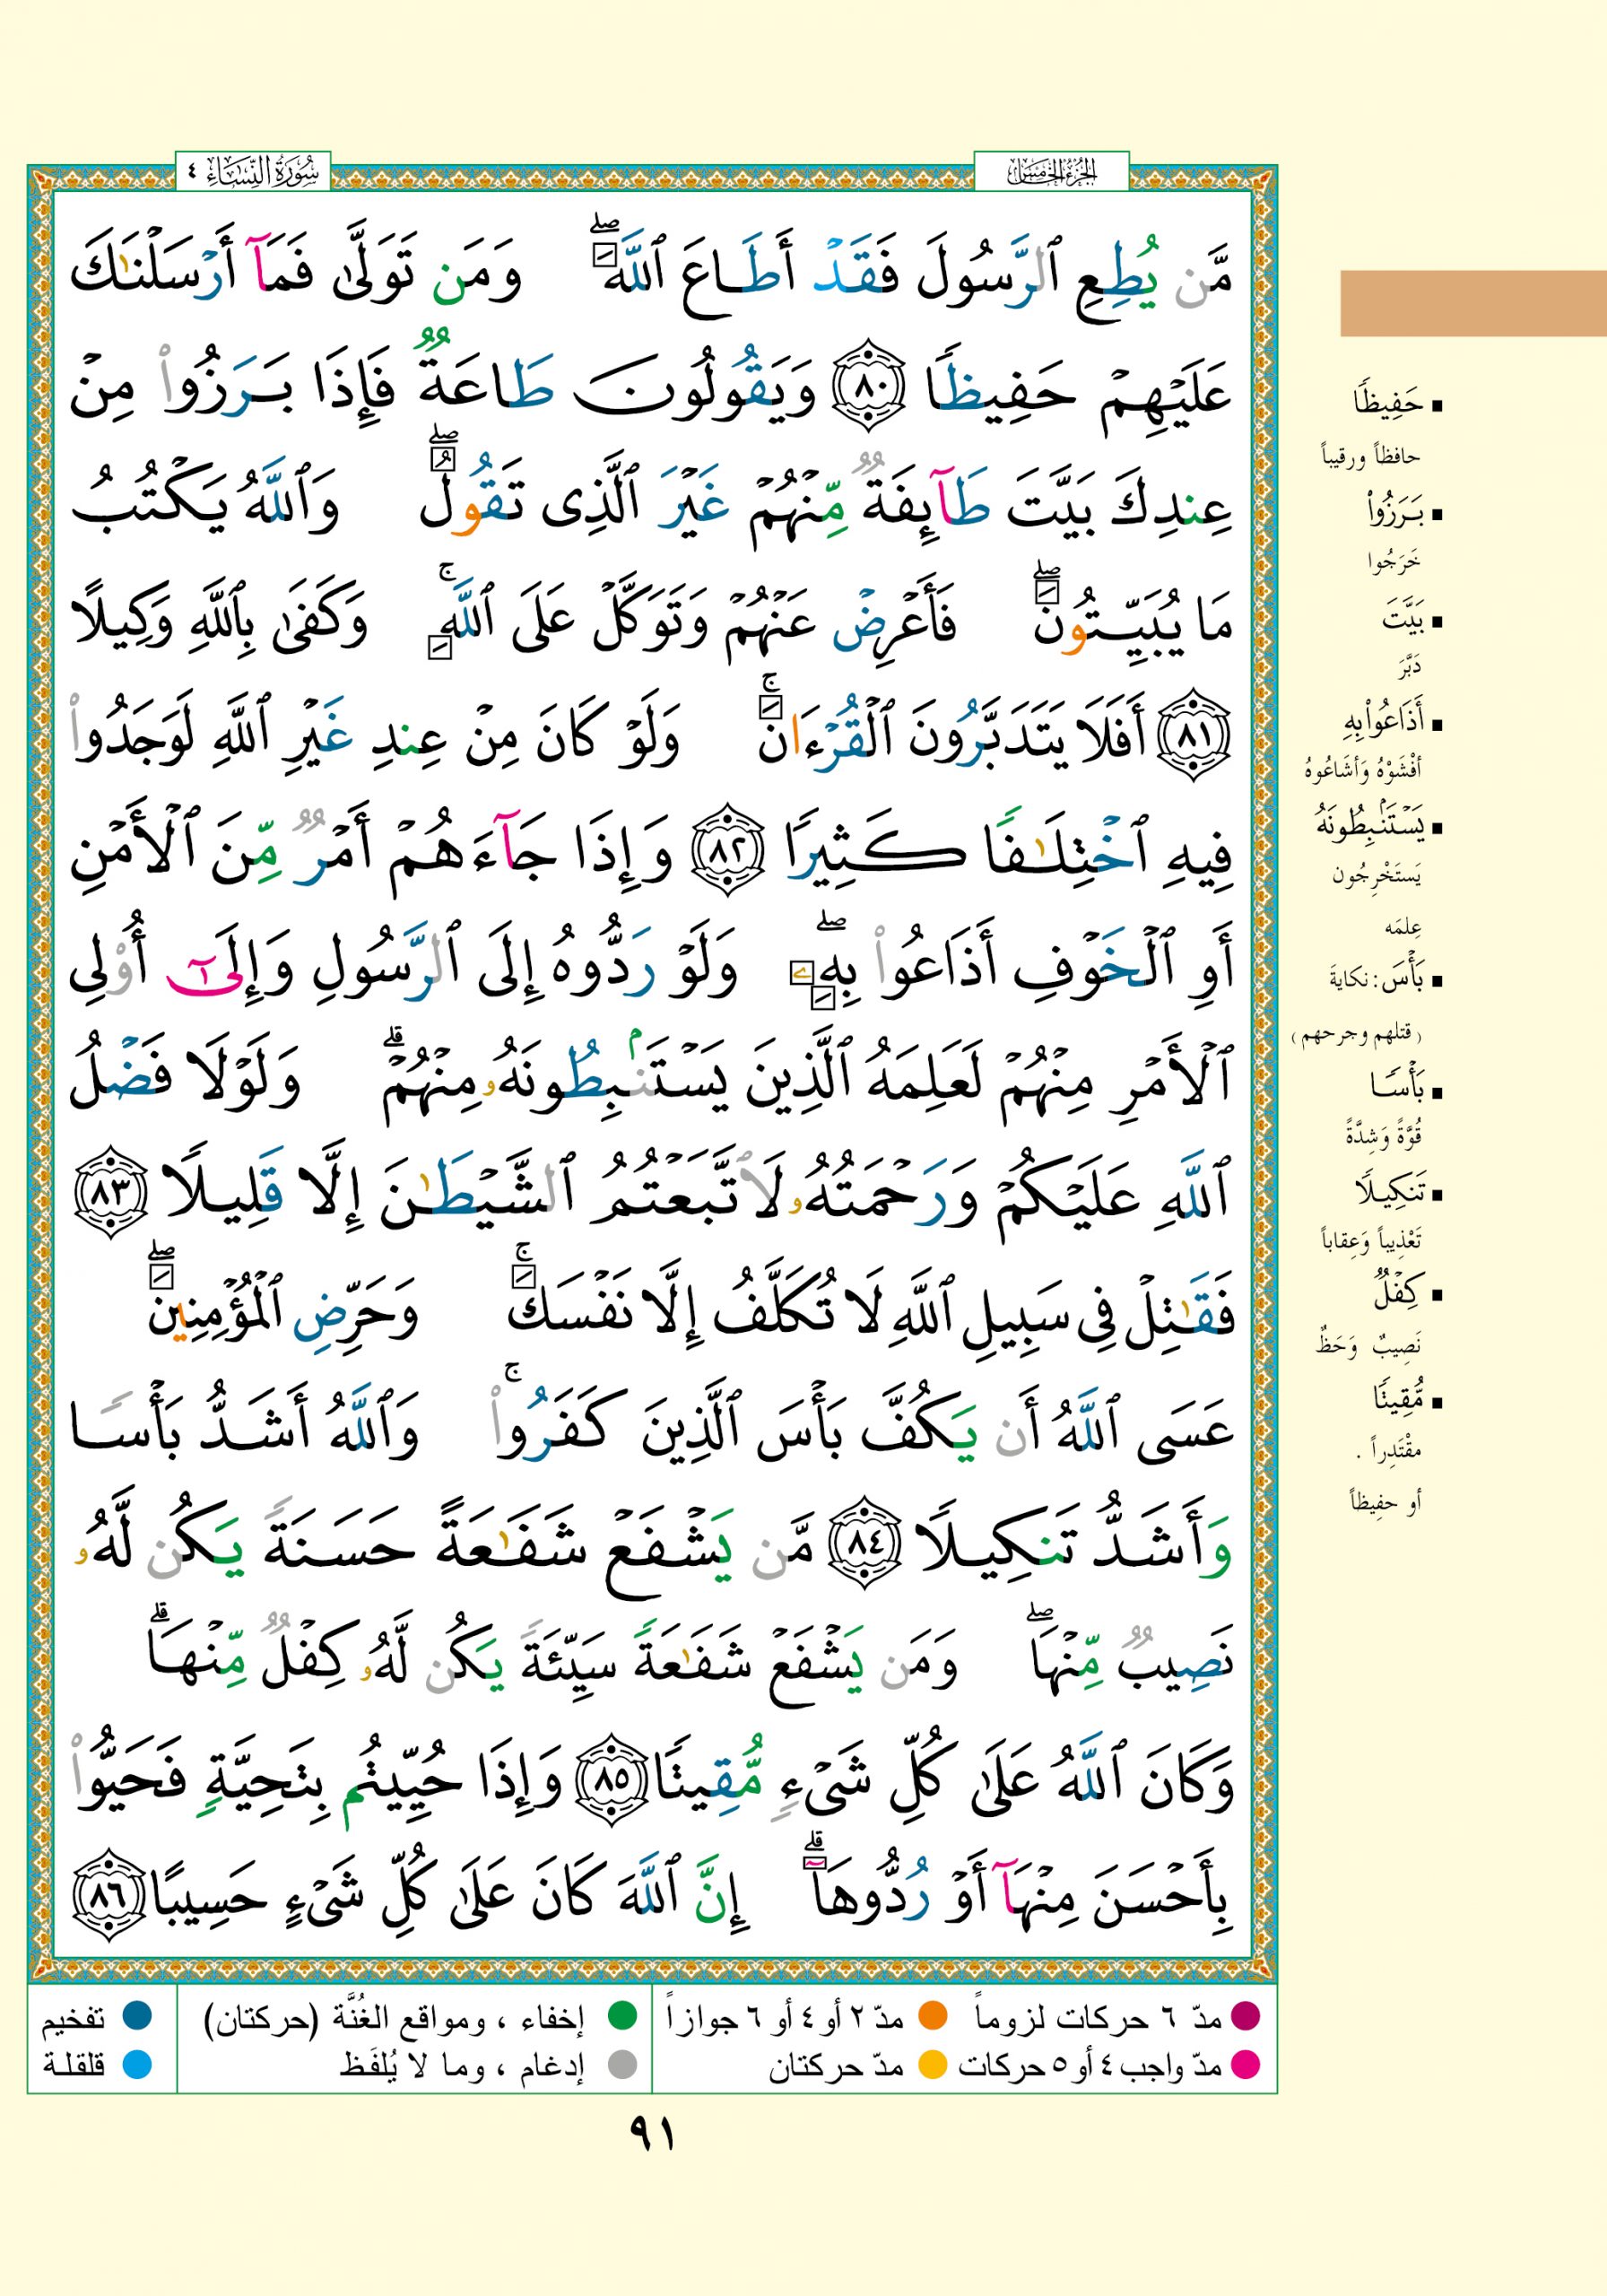 الجزء الخامس
سورة النساء ٤
مَّن يُطِعِ ٱلرَّسُولَ فَقَدۡ أَطَاعَ ٱللَّهَۖ وَمَن تَوَلَّىٰ فَمَآ أَرۡسَلۡنَٰكَ
عَلَيۡهِمۡ حَفِيظٗا ٨٠ وَيَقُولُونَ طَاعَةٞ فَإِذَا بَرَزُواْ مِنۡ
عِندِكَ بَيَّتَ طَآئِفَةٞ مِّنۡهُمۡ غَيۡرَ ٱلَّذِى تَقُولُۖ وَٱللَّهُ يَكۡتُبُ
مَا يُبَيِّتُونَۖ فَأَعۡرِضۡ عَنۡهُمۡ وَتَوَكَّلۡ عَلَى ٱللَّهِۚ وَكَفَىٰ بِٱللَّهِ وَكِيلًا
٨١ أَفَلَا يَتَدَبَّرُونَ ٱلۡقُرۡءَانَۚ وَلَوۡ كَانَ مِنۡ عِندِ غَيۡرِ ٱللَّهِ لَوَجَدُواْ
فِيهِ ٱخۡتِلَٰفٗا كَثِيرٗا ٨٢ وَإِذَا جَآءَهُمۡ أَمۡرٞ مِّنَ ٱلۡأَمۡنِ
أَوِ ٱلۡخَوۡفِ أَذَاعُواْ بِهِۦۖ وَلَوۡ رَدُّوهُ إِلَى ٱلرَّسُولِ وَإِلَىٰٓ أُوْلِى
ٱلۡأَمۡرِ مِنۡهُمۡ لَعَلِمَهُ ٱلَّذِينَ يَسۡتَنۢبِطُونَهُۥ مِنۡهُمۡۗ وَلَوۡلَا فَضۡلُ
ٱللَّهِ عَلَيۡكُمۡ وَرَحۡمَتُهُۥ لَٱتَّبَعۡتُمُ ٱلشَّيۡطَٰنَ إِلَّا قَلِيلٗا ٨٣
فَقَٰتِلۡ فِى سَبِيلِ ٱللَّهِ لَا تُكَلَّفُ إِلَّا نَفۡسَكَۚ وَحَرِّضِ ٱلۡمُؤۡمِنِينَۖ
عَسَى ٱللَّهُ أَن يَكُفَّ بَأۡسَ ٱلَّذِينَ كَفَرُواْۚ وَٱللَّهُ أَشَدُّ بَأۡسٗا
وَأَشَدُّ تَنكِيلٗا ٨٤ مَّن يَشۡفَعۡ شَفَٰعَةً حَسَنَةٗ يَكُن لَّهُۥ
نَصِيبٞ مِّنۡهَاۖ وَمَن يَشۡفَعۡ شَفَٰعَةٗ سَيِّئَةٗ يَكُن لَّهُۥ كِفۡلٞ مِّنۡهَاۗ
وَكَانَ ٱللَّهُ عَلَىٰ كُلِّ شَىۡءٖ مُّقِيتٗا ٨٥ وَإِذَا حُيِّيتُم بِتَحِيَّةٖ فَحَيُّواْ
بِأَحۡسَنَ مِنۡهَآ أَوۡ رُدُّوهَآۗ إِنَّ ٱللَّهَ كَانَ عَلَىٰ كُلِّ شَىۡءٍ حَسِيبًا ٨٦
حَفِيظٗا
حافظاً ورقيباً
بَرَزُواْ
خَرَجُوا
بَيَّتَ
دَبَّرَ
أَذَاعُواْ بِهِ
أفْشَوْهُ وَأشَاعُوهُ
يَسۡتَنۢبِطُونَهُ
يَستَخْرِجُون
عِلمَه
بَأۡسَ: نكايةَ
(قتلهم وجرحهم)
بَأۡسٗا
قُوَّةً وَشِدَّةً
تَنكِيلٗا
تَعْذِيباً وَعِقاباً
كِفۡلٞ
نَصِيبٌ وَحَظٌ
مُّقِيتٗا
مقْتَدِراً .
أو حفِيظاً
مدّ ٦ حركات لزوماً
مدّ ٢ أو ٤ أو ٦ جوازاً
إخفاء ، ومواقع الغُنَّة (حركتان)
تفخيم
مدّ واجب ٤ أو ٥ حركات
مدّ حركتان
إدغام ، وما لا يُلفَظ
قلقلة
٩١